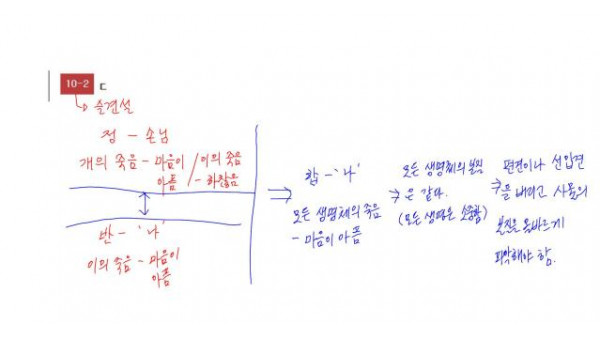 10-2 ㄷ
슬견설
정 - 손님
개의 죽음 - 마음이 아픔 / 이의 죽음 - 하찮음
반 - '나'
이의 죽음 - 마음이 아픔
합 - '나'
모든 생명체의 죽음
- 마음이 아픔
모든 생명체의 본질
은 같다.
(모든 생명은 소중함)
편견이나 선입견
을 버리고 사물의
본질을 올바르게
파악해야 함.